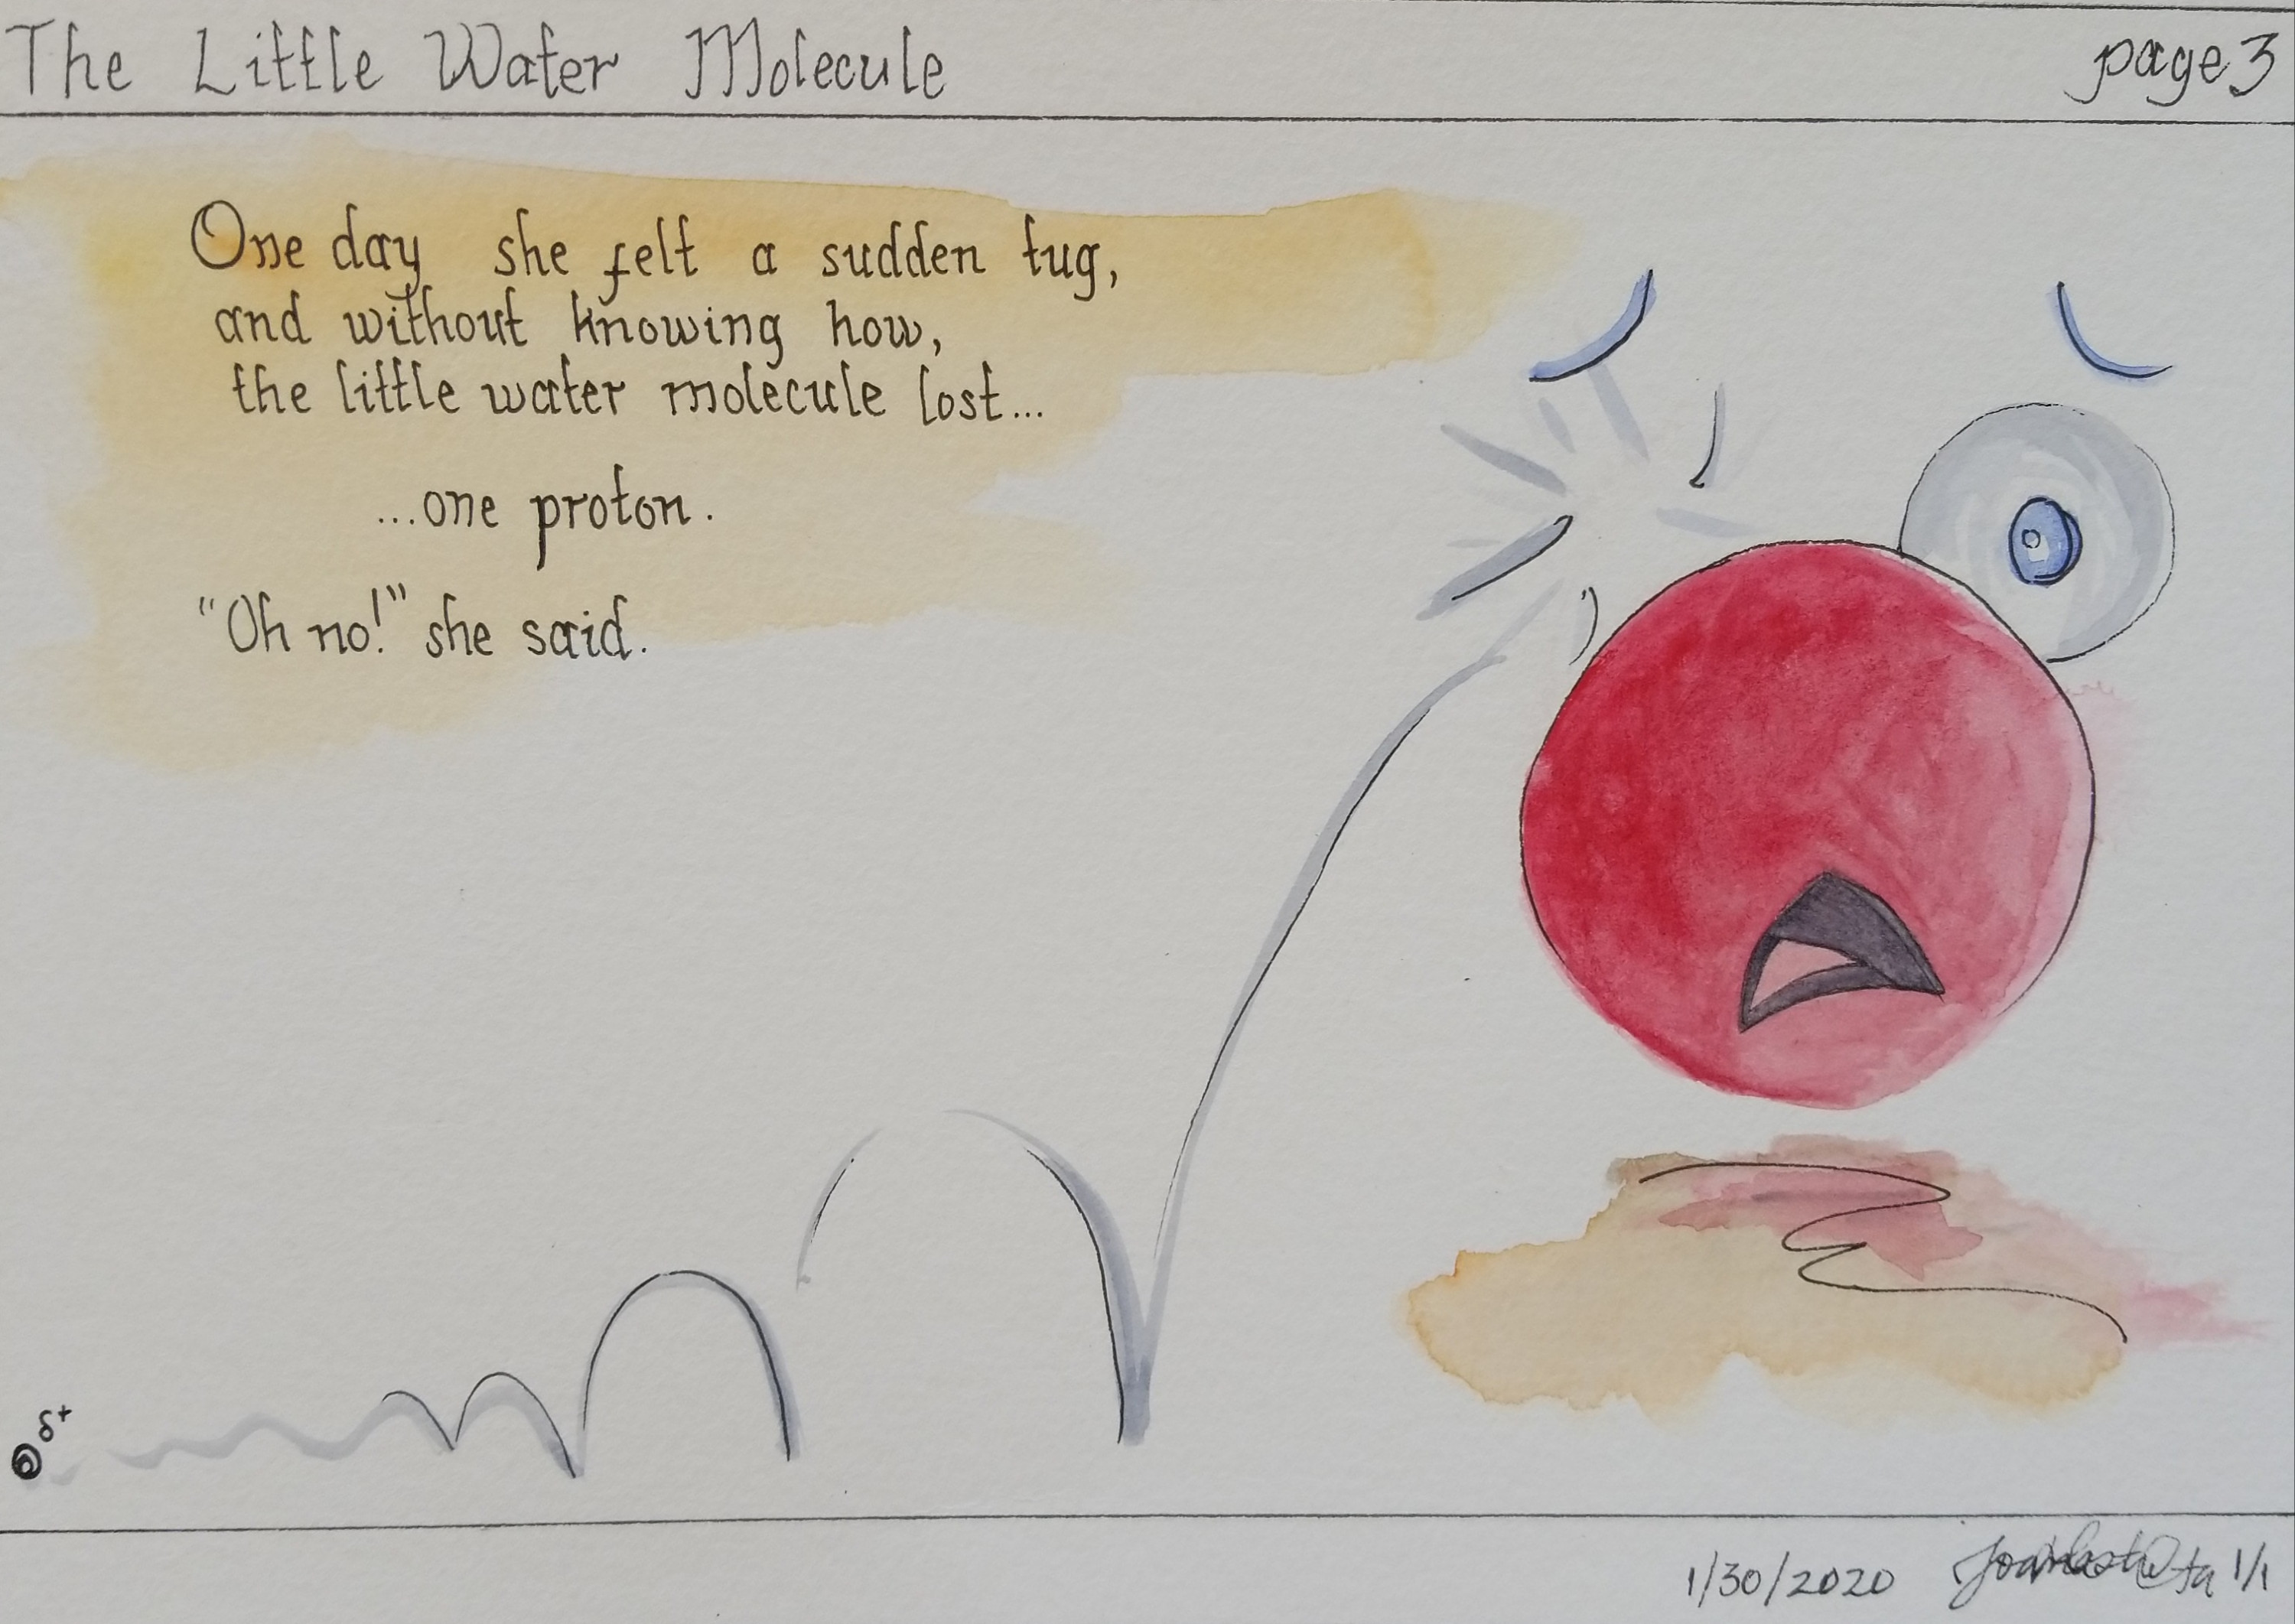 The Little Water Molecule
page 3
One day she felt a sudden tug,
and without knowing how,
the little water molecule lost...
...one proton.
"Oh no!" she said.
δ+
1/30/2020 1/1